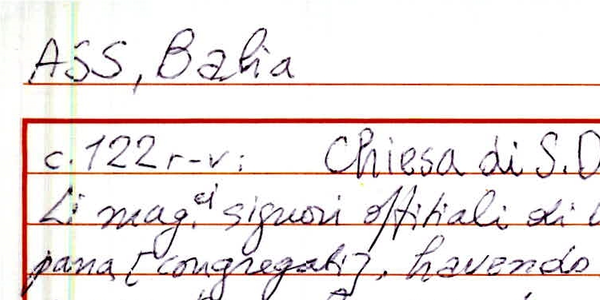 ASS, Balia
c. 122 r-v: Chiesa di S. D
Li mag.ci signori offitiali di
pana [congregati], havendo